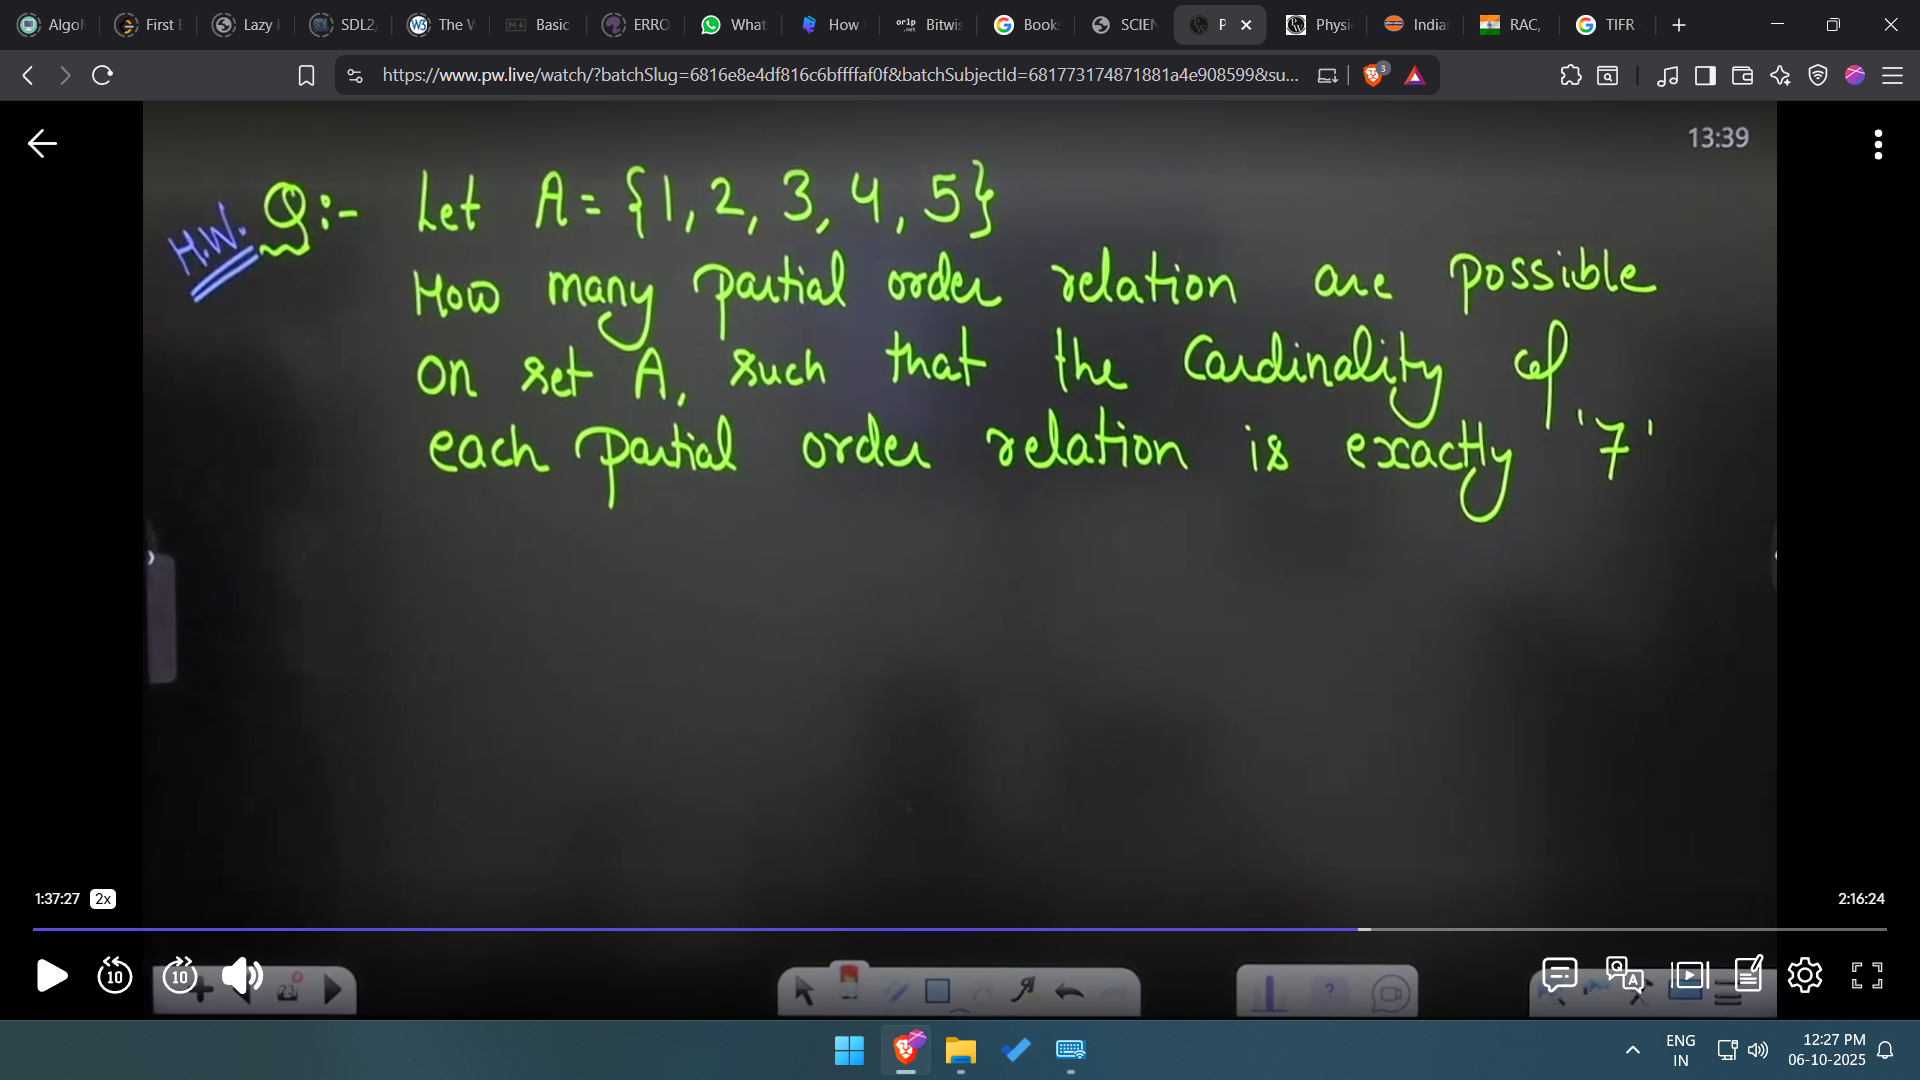 Algo
First E
Lazy
SDL2
The W
Basic
ERRO
What
How
orlp .net Bitwis
Book
SCIEN
P
Physi
India
RAC,
TIFR
https://www.pw.live/watch/?batchSlug=6816e8e4df816c6bffffaf0f&batchSubjectId=681773174871881a4e908599&su...
3
13:39
H.W. Q:- Let A = {1, 2, 3, 4, 5}
How many partial order relation are possible
on set A, such that the Cardinality of
each partial order relation is exactly '7'
1:37:27 2x
2:16:24
10 10
23
ENG
IN
12:27 PM
06-10-2025